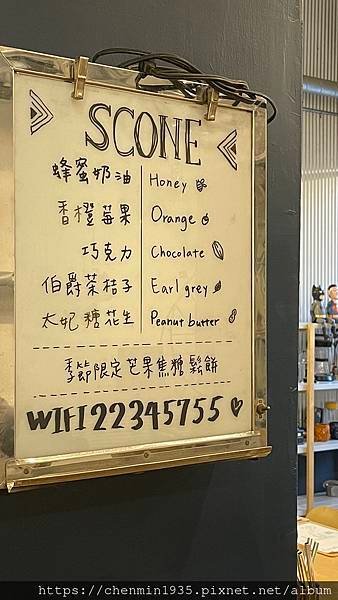 SCONE
蜂蜜奶油 Honey
香橙莓果 Orange
巧克力 Chocolate
伯爵茶桔子 Earl grey
太妃糖花生 Peanut butter
季節限定芒果焦糖鬆餅
WIFI 22345755
https://chenmin1935.pixnet.net/album